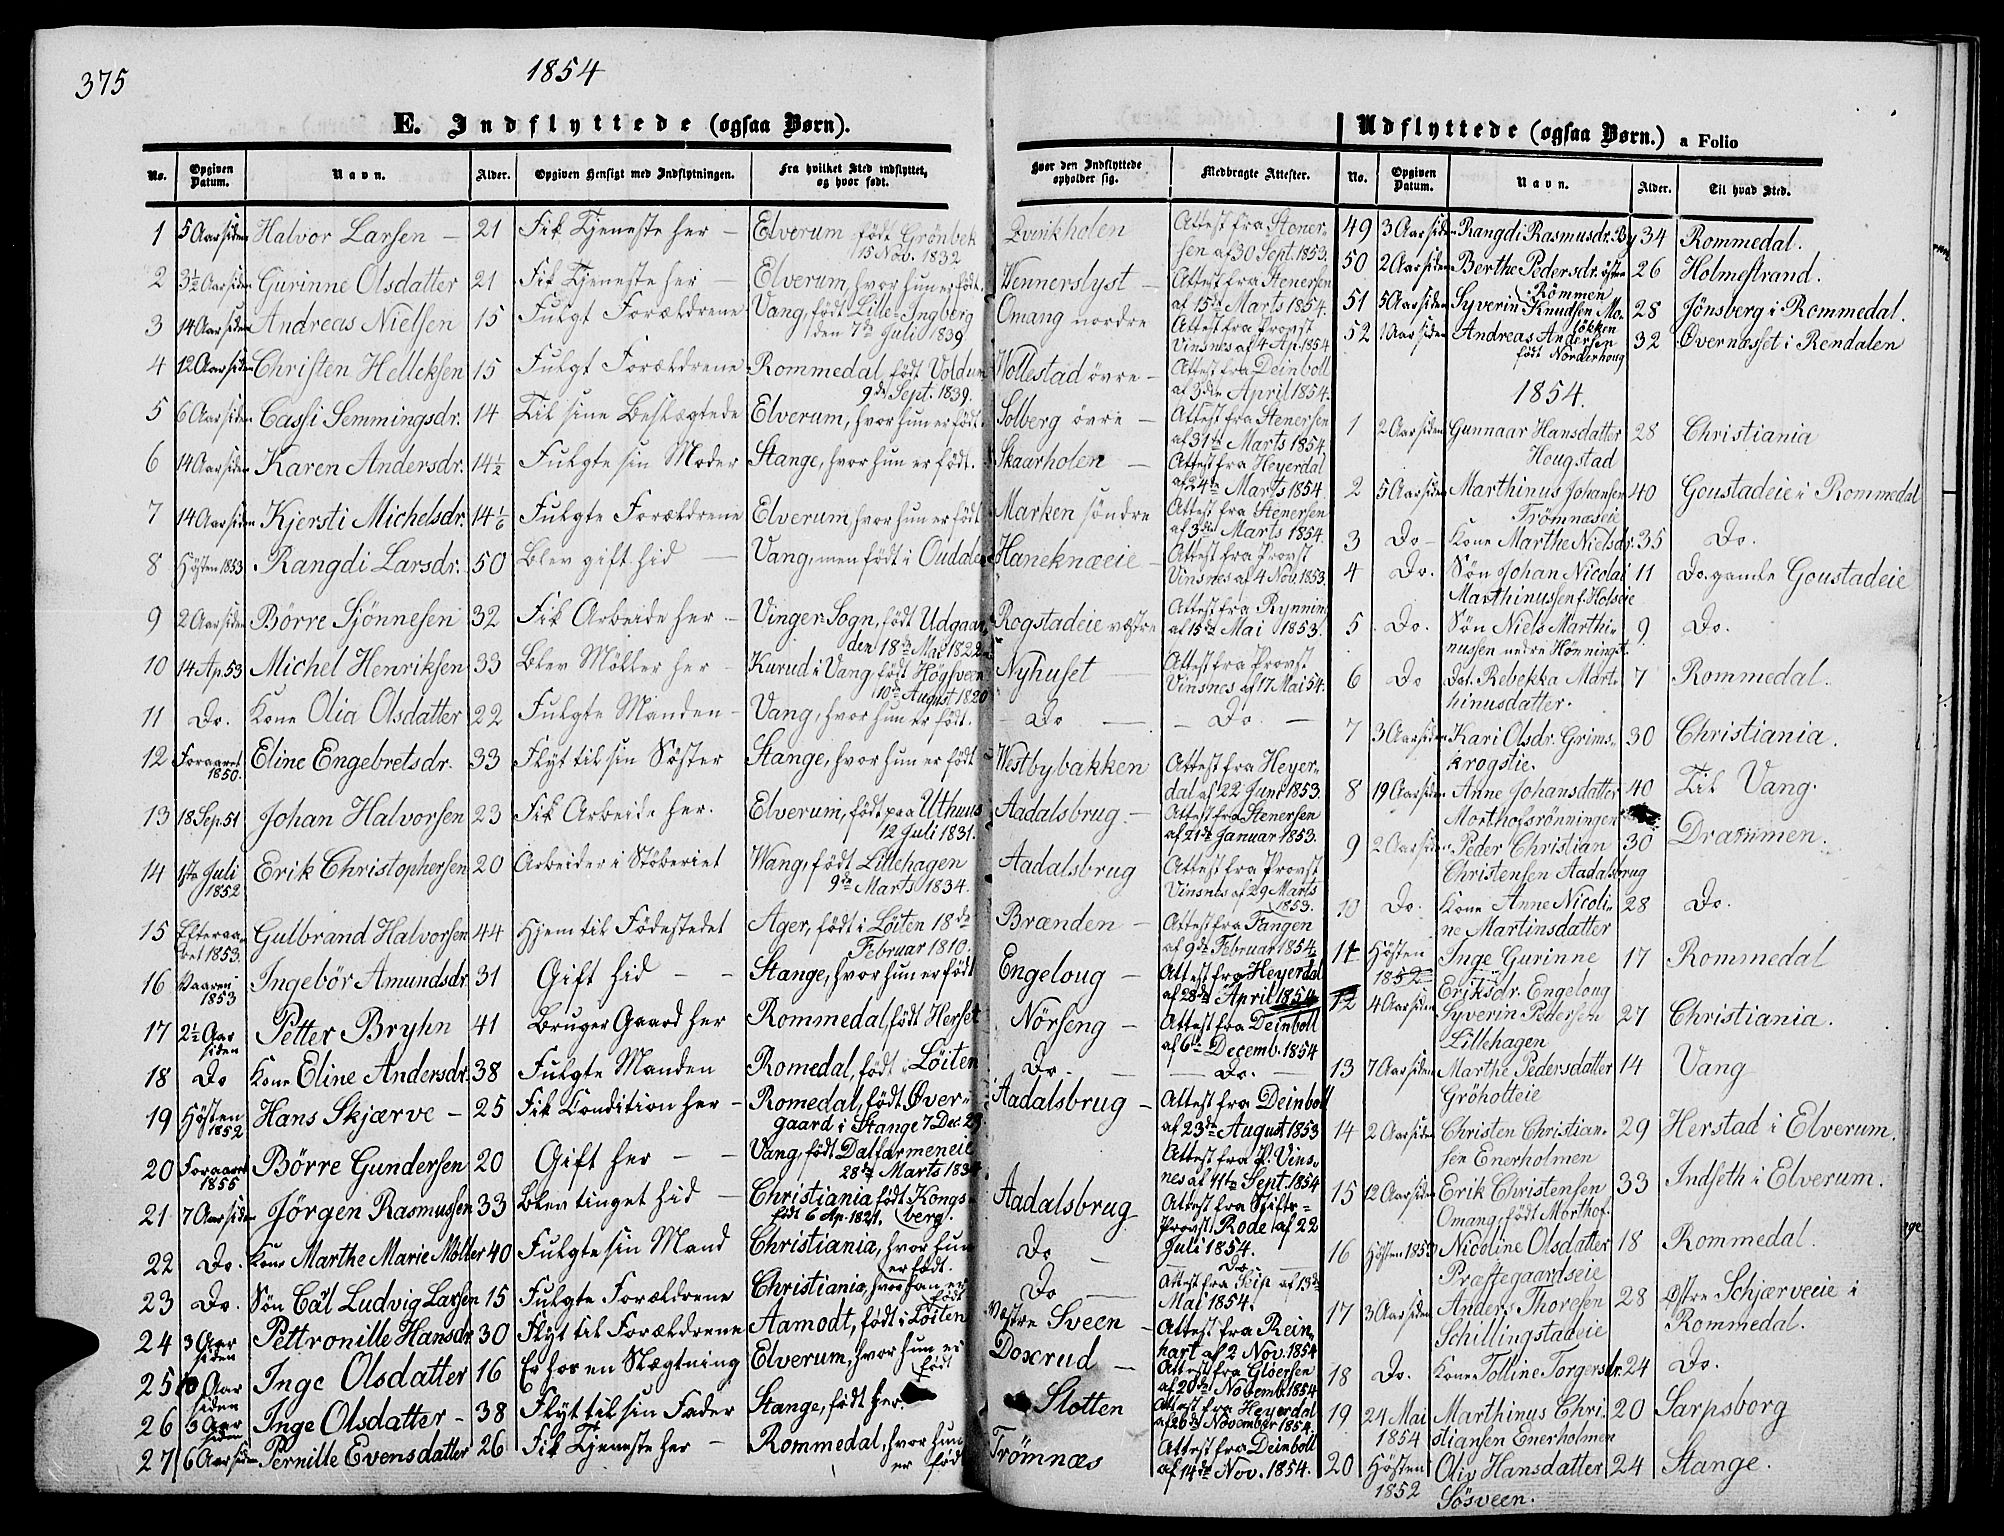 375
1854
E. Indflyttede (ogsaa Børn).
No. Opgiven Datum. Navn. Alder. Opgiven Hensigt med Indflytningen. Fra hvilket Sted indflyttet, og hvor født. Hvor den Indflyttede opholder sig. Medbragte Attester.
1 5 Aar siden Halvor Larsen — 21 Fik Tjeneste her — Elverum født Grönbek 15 Nov. 1832 Qvirikholen Attest fra Stenersen af 30 Sept. 1853.
2 3½ Aar siden Gurinne Olsdatter 21 Fik Tjeneste her — Elverum, hvor hun er födt. Wennerslyst — Attest fra Stenersen af 15de Marts 1854.
3 14 Aar siden Andreas Nielsen 15 Fulgt Forældrene Vang, født Lille-Ingberg den 7de Juli 1839 Omang nordre Attest fra Provst Vinsnes af 4 Ap. 1854
4 12 Aar siden Christen Helleksen 15 Fulgt Forældrene Rommedal, født Voldum 9de Sept. 1839. Wollestad övre — Attest fra Deinboll af 3die April 1854.
5 6 Aar siden Cassi Semmingsdr. 14 Til sine Beslægtede Elverum, hvor hun er födt Solberg övre — Attest fra Stenersen af 31te Marts 1854.
6 14 Aar siden Karen Andersdr. 14½ Fulgte sin Moder Stange, hvor hun er født. Skaarholen — Attest fra Heyerdal af 24de Marts 1854.
7 14 Aar siden Kjersti Michelsdr. 14 1/6 Fulgte Forældrene Elverum, hvor hun er födt Marken söndre Attest fra Stenersen af 3die Marts 1854.
8 Hösten 1853 Rangdi Larsdr. 50 Blev gift hid — Vang, men født i Oudalen Haneknæeie — Attest fra Provst Vinsnes af 4 Nov. 1853.
9 2 Aar siden Börre Sjönnesen 32 Fik Arbeide her — Vinger-Sogn, født Udgaarden 18de Mai 1822 Rogstadeie væstre Attest fra Rynning af 15de Mai 1853.
10 14 Ap. 53 Michel Henriksen 33 Blev Möller her — Kurud i Vang født Högsveen 10de August 1820 Nyhuset — Attest fra Provst Vinsnes af 17 Mai 54.
11 Do. Kone Olia Olsdatter 22 Fulgte Manden — Vang, hvor hun er født. — Do — — Do. —
12 Foraaret 1850. Eline Engebretsdr. 33 Flyt til sin Söster Stange, hvor hun er födt Westbybakken Attest fra Heyerdal af 22 Juni 1853.
13 18 Sep. 51 Johan Halvorsen 23 Fik Arbeide her. Elverum, født paa Uthuus 12 Juli 1831. Aadalsbrug — Attest fra Stenersen af 21de Januar 1853.
14 1ste Juli 1852 Erik Christophersen 20 Arbeider i Stöberiet Wang, født Lillehagen 9de Marts 1834. Aadalsbrug Attest fra Provst Vinsnes af 29 Marts 1853.
15 Efteraaret 1853. Gulbrand Halvorsen 44 Hjem til Födestedet Ager, födt i Løiten 18de Februar 1810. Brænden — Attest fra Fangen af 9de Februar 1854.
16 Vaaren 1853 Ingebör Amundsdr. 31 Gift hid — — Stange, hvor hun er födt Engeloug — Attest fra Heyerdal af 28de April 1854
17 2½ Aar siden Petter Bryhn 41 Bruger Gaard her Rommedal, født Herset Nörseng — Attest fra Deinboll af 6te Decemb. 1854
18 Do Kone Eline Andersdr. 38 Fulgte Manden Romedal, født i Løiten Do. — — Do. —
19 Hösten 1852 Hans Skjærve — 25 Fik Condition her — Romedal, født Övergaard i Stange 7 Dec. 29 Aadalsbrug — Attest fra Deinboll af 23de August 1853
20 Foraaret 1855 Börre Gundersen 20 Gift her — — Vang, født Dalfarmeneie 28de Marts 1834 Attest fra P. Vinsnes af 11te Sept. 1854
21 7 Aar siden Jörgen Rasmussen 33 Blev tinget hid — Christiania født Kongsberg. födt 6 Ap. 1821. Aadalsbrug Attest fra Stifts-Provst Rode af 22 Juli 1854.
22 Do. Kone Marthe Marie Möller 40 Fulgte sin Mand Christiania, hvor hun er født. Do — Do.
23 Do. Sön Cal Ludvig Larsen 15 Fulgte Forældrene Christiania, hvor han er født Do — Attest fra Seip af 13de Mai 1854.
24 3 Aar siden Pettronille Hansdr. 30 Flyt til Forældrene Aamodt, født i Løiten Væstre Sveen — Attest fra Reinhart af 2 Nov. 1854
25 10 Aar siden Inge Olsdatter 16 Er hos en Slægtning Elverum, hvor hun er født Doxrud — Attest fra Gloersen af 20de Novemb. 1854
26 3 Aar siden Inge Olsdatter — 38 Flyt til sin Fader Stange, født her. Slotten Attest fra Heyerdal af 26de November 1854.
27 6 Aar siden Pernille Evensdatter 26 Fik Tjeneste her — Rommedal, hvor hun er född Trömnæs Attest fra Deinboll af 14de Nov. 1854.
Udflyttede (ogsaa Børn.) a Folio
No. Opgiven Datum. Navn. Alder. Til hvad Sted.
49 3 Aar siden Rangdi Rasmusdr. By 34 Rommedal.
50 2 Aar siden Berthe Pedersdr. östre Römmen 26 Holmestrand.
51 5 Aar siden Syverin Knudsen Molökken 28 Jönsberg i Rommedal.
52 1 Aar siden Andreas Andersen født Norderhoug 32 Övernæsset i Rendalen
1854.
1 2 Aar siden Gunnaar Hansdatter Hougstad 28 Christiania
2 5 Aar siden Marthinus Johansen Trömnæseie 40 Goustadeie i Rommedal
3 Do — Kone Marthe Nielsdr. 35 Do.
4 Do. Sön Johan Nicolai Marthinussen f. Holseie 11 Do. gamle Goustadeie
5 Do. Sön Niels Marthinussen nedre Hönninget. 9 Do.
6 Do Dat. Rebekka Marthinusdatter. 7 Rommedal.
7 3 Aar siden Kari Olsdr. Grimskrogstie. 30 Christiania.
8 19 Aar siden Anne Johansdatter Morthofsrönningen 40 Til Vang.
9 2 Aar siden Peder Christian Christensen Aadalsbrug 30 Drammen.
10 Do. Kone Anne Nicoline Martinsdatter 28 Do.
11 Hösten 1852 Inge Gurinne Eriksdr. Engeloug 17 Rommedal
12 4 Aar siden Syverin Pedersen Lillehagen 27 Christiania.
13 7 Aar siden Marthe Pedersdatter Gröholteie 14 Vang
14 2 Aar siden Christen Christiansen Enerholmen 29 Herstad i Elverum.
15 12 Aar siden Erik Christensen Omang, født Morthof. 33 Indseth i Elverum.
16 Hösten 1853 Nicoline Olsdatter Præstegaardseie 18 Rommedal.
17 3 Aar siden Anders Thoresen Schillingstadeie 28 Østre Schjærveeie i Rommedal.
18 Do. Kone Tolline Torgersdr. 24 Do.
19 24 Mai 1854 Marthinus Christiansen Enerholmen 20 Sarpsborg
20 Hösten 1852 Oliv Hansdatter Sösveen. 24 Stange.